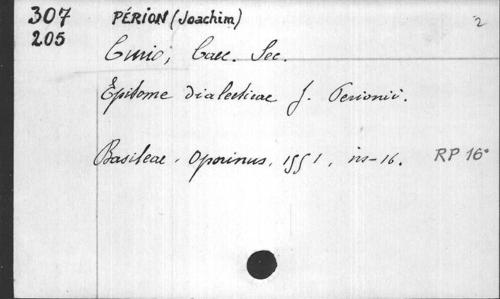 307 PÉRION (Joachim) 2
205 Curio, Cael. Sec.
Epitome dialecticae J. Perionii.
Basileae, Oporinus, 1551, in-16. RP 16°